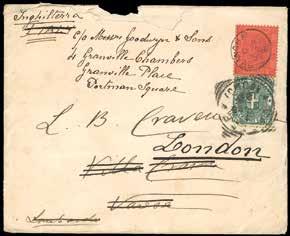 Inghilterra
Italy
c/o Messrs Goodwyn & Sons
4 Granville Chambers
Granville Place
Portman Square
L. B. Craven
London
Villa
Varese
Lombardia